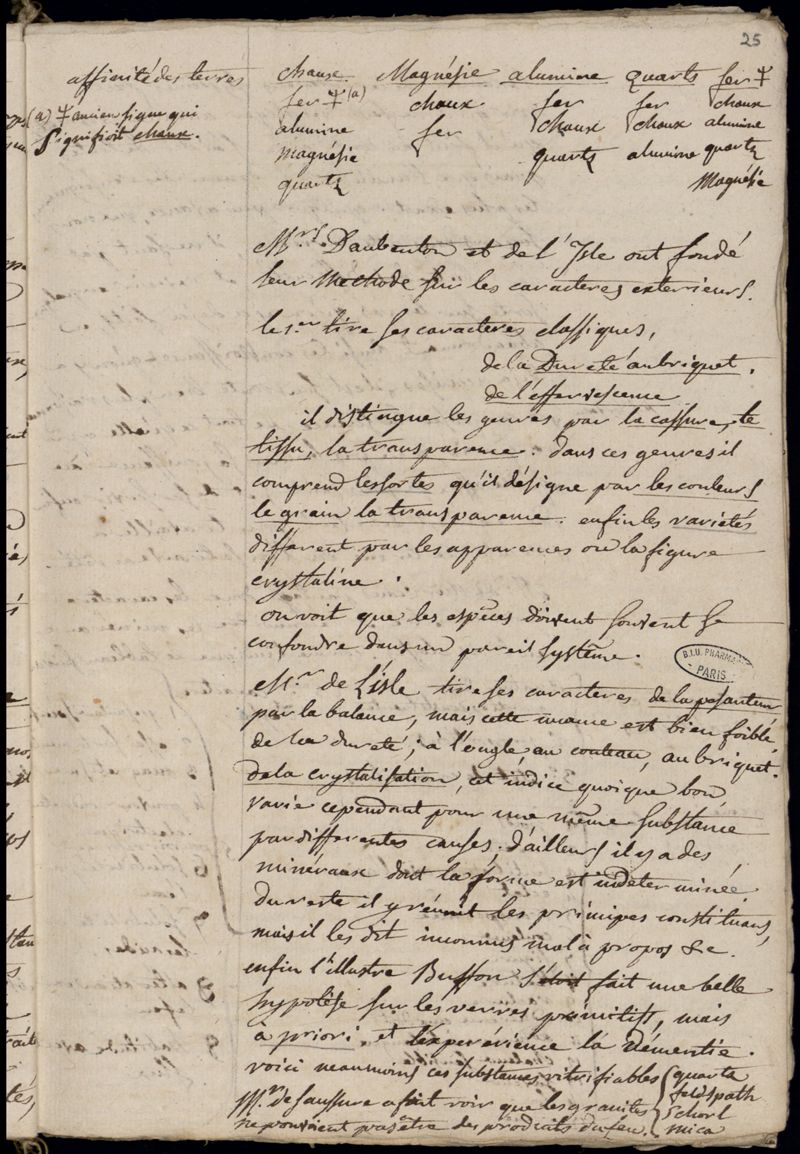 25
affinité des terres
(a) ♆ ancien signe qui
signifioit chaux.
chaux. Magnésie alumine quarts fer ♆
fer ♆ (a) chaux fer fer chaux
alumine fer chaux chaux alumine
magnésie quartz alumine quartz
quartz Magnésie
Mrs. Daubenton et de l'Isle ont fondé
leur methode sur les caracteres exterieurs.
le 1.er tire ses caracteres classiques,
de la Dureté au briquet.
de l'effervescence
il distingue les genres par la cassure, le
tissu, la transparence. dans ces genres il
comprend les sortes qu'il désigne par les couleurs
le grain la transparence. enfin les varietés
different par les apparences ou la figure
crystaline.
on voit que les espèces doivent souvent se
confondre dans un pareil système.
B.I.U. PHARMACIE
PARIS
M.r de Lisle tire ses caracteres de la pesanteur
par la balance, mais cette nuance est bien foible,
de la dureté; à l'ongle, au couteau, au briquet.
de la crystalisation, cet indice quoique bon,
varie cependant pour une même substance
par differentes causes. d'ailleurs il y a des
minéraux dont la forme est indeterminée.
du reste il y réunit les principes constituans,
mais il les dit inconnus mal à propos &c.
enfin l'illustre Buffon s'étoit fait une belle
hypotèse sur les verres primitifs, mais
à priori, et l'experience la démentie.
voici neanmoins ces substances vitrifiables { quartz
feldspath
Schorl
mica
M.r de Saussure a fait voir que les granites
ne pouvoient pas être des produits du feu.